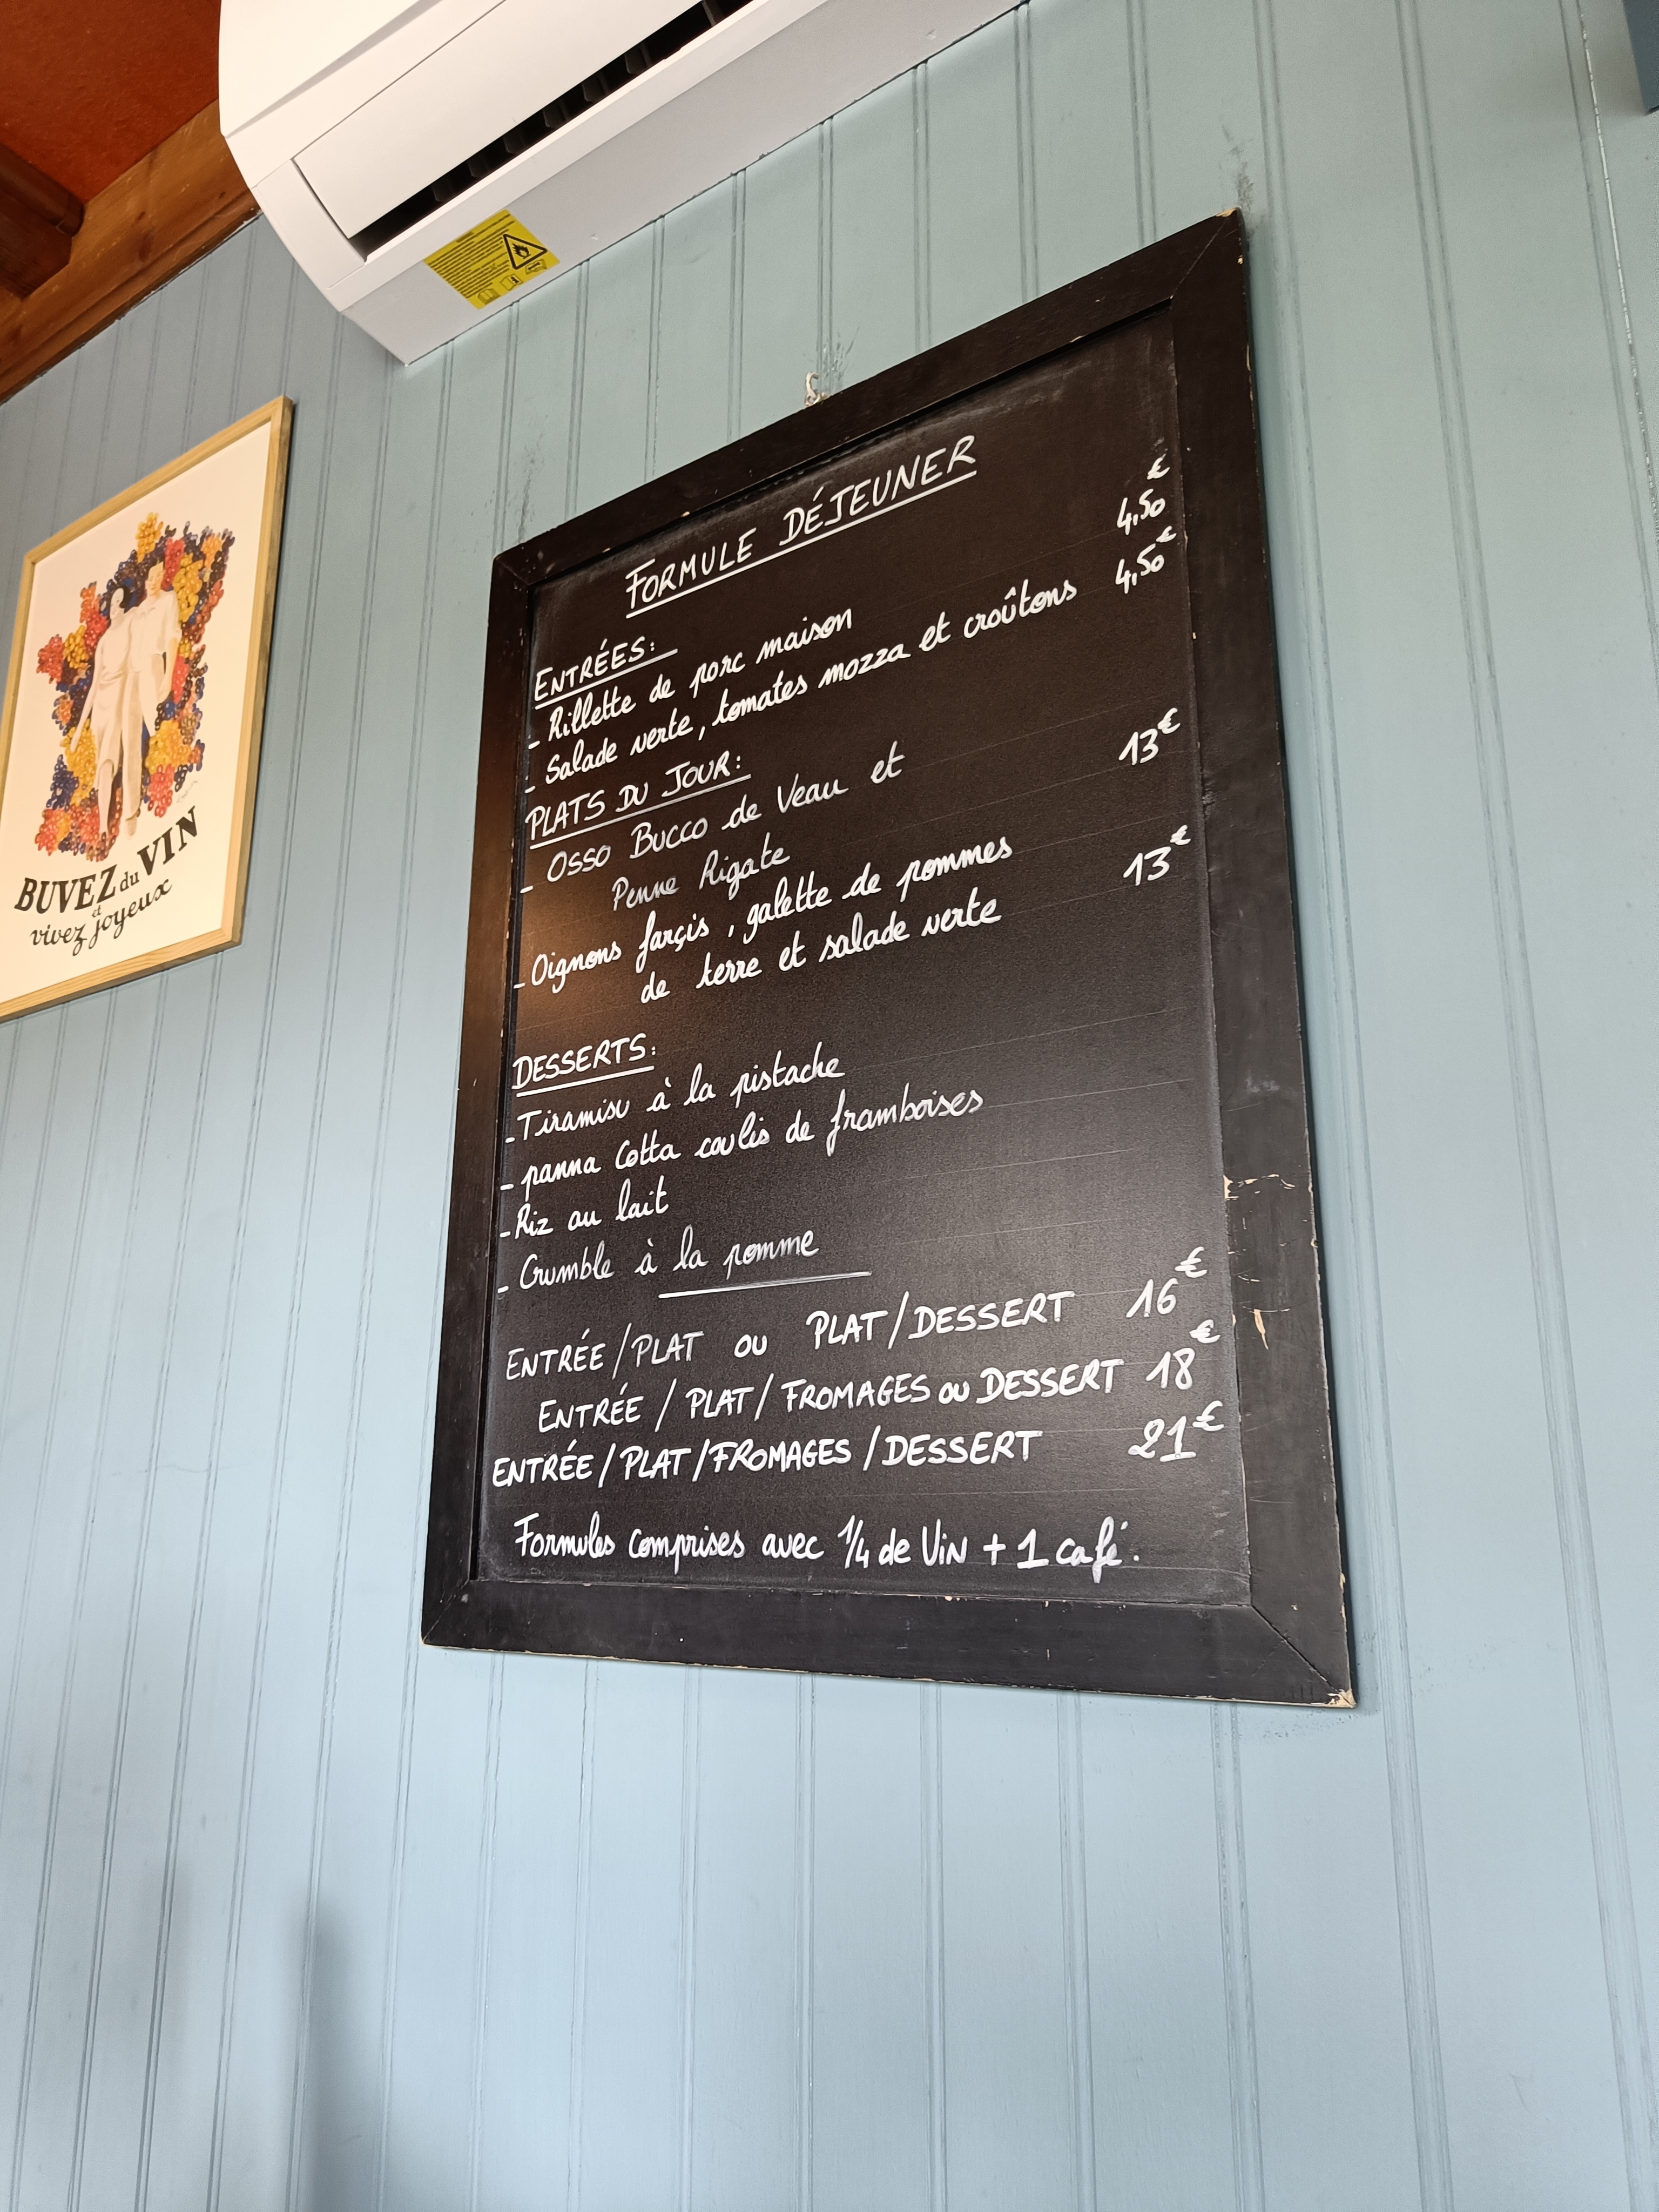 FORMULE DÉJEUNER
ENTRÉES:
- Rillette de porc maison 4,50€
- Salade verte, tomates mozza et croûtons 4,50€
PLATS DU JOUR:
- OSSO BUCCO de Veau et 13€
Penne Rigate
- Oignons farçis, galette de pommes 13€
de terre et salade verte
DESSERTS:
- Tiramisu à la pistache
- panna Cotta coulis de framboises
- Riz au lait
- Crumble à la pomme
ENTRÉE/PLAT OU PLAT/DESSERT 16€
ENTRÉE / PLAT / FROMAGES OU DESSERT 18€
ENTRÉE/PLAT/FROMAGES/DESSERT 21€
Formules comprises avec 1/4 de Vin + 1 café.
BUVEZ du VIN
et
vivez joyeux